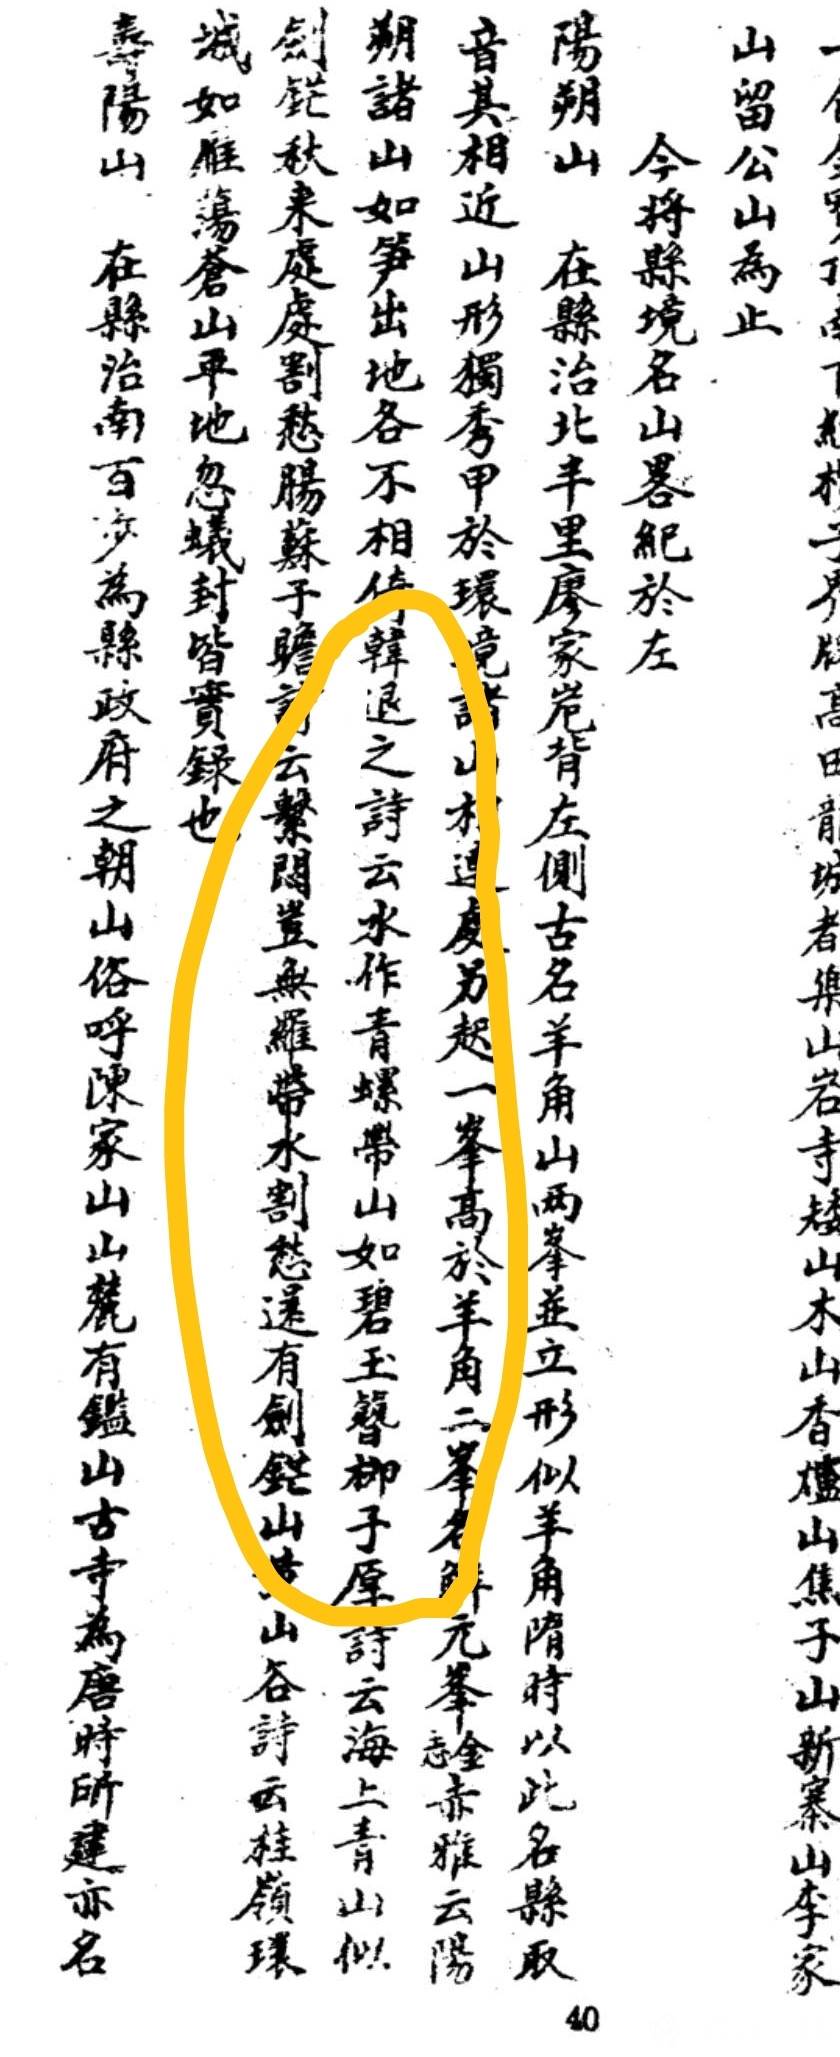 山留公山為止
今將縣境名山畧紀於左
陽朔山　在縣治北半里廖家岩背左側古名羊角山兩峯並立形似羊角隋時以此名縣取
音其相近山形獨秀甲於環境諸山相連處另起一峯高於羊角二峯名解元峯金志赤雅云陽
朔諸山如笋出地各不相倚韓退之詩云水作青螺帶山如碧玉簪柳子厚詩云海上青山似
劍鋩秋來處處割愁腸蘇子瞻詩云繫悶豈無羅帶水割愁還有劍鋩山黃山谷詩云桂嶺環
城如雁蕩蒼山平地忽蟻封皆實錄也
壽陽山　在縣治南百步為縣政府之朝山俗呼陳家山山麓有鑑山古寺為唐時所建亦名
40